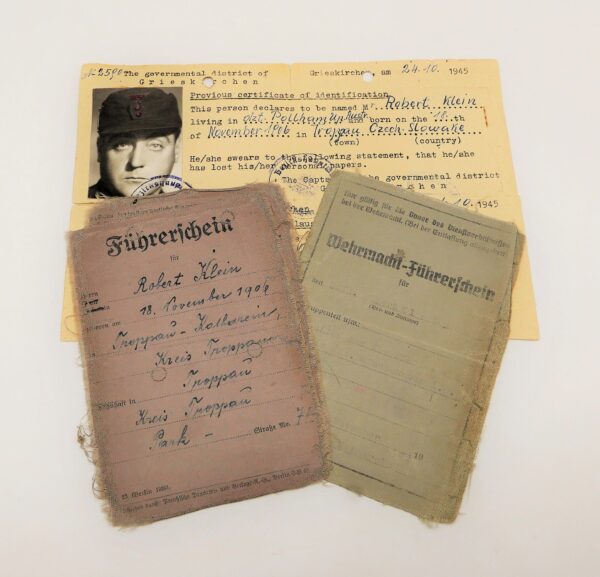 K2590 The governmental district of Grieskirchen, am 24.10. 1945
Grieskirchen
Provious certificate of identification
This person declares to be named Mr. Robert Klein
living in dzt. Pollham and born on the 18. th
of November 1906 in Troppau Czech-Slowake
(town) (country)
He/she swears to the following statement, that he/she
has lost his/her personal papers.
The Capt governmental district
.10. 1945
Führerschein
für
Robert Klein
18. November 1906
Troppau - Katharein,
Kreis Troppau
Troppau
Kreis Troppau
Park - Straße Nr.
Nur gültig für die Dauer des Dienstverhältnisses
bei der Wehrmacht. (Bei der Entlassung
Wehrmacht-Führerschein
für
den
19